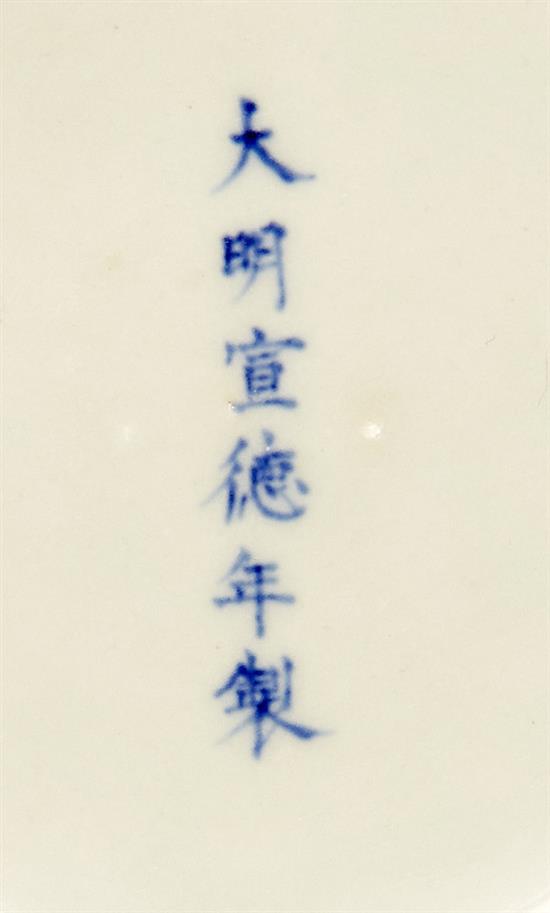 大明宣德年製